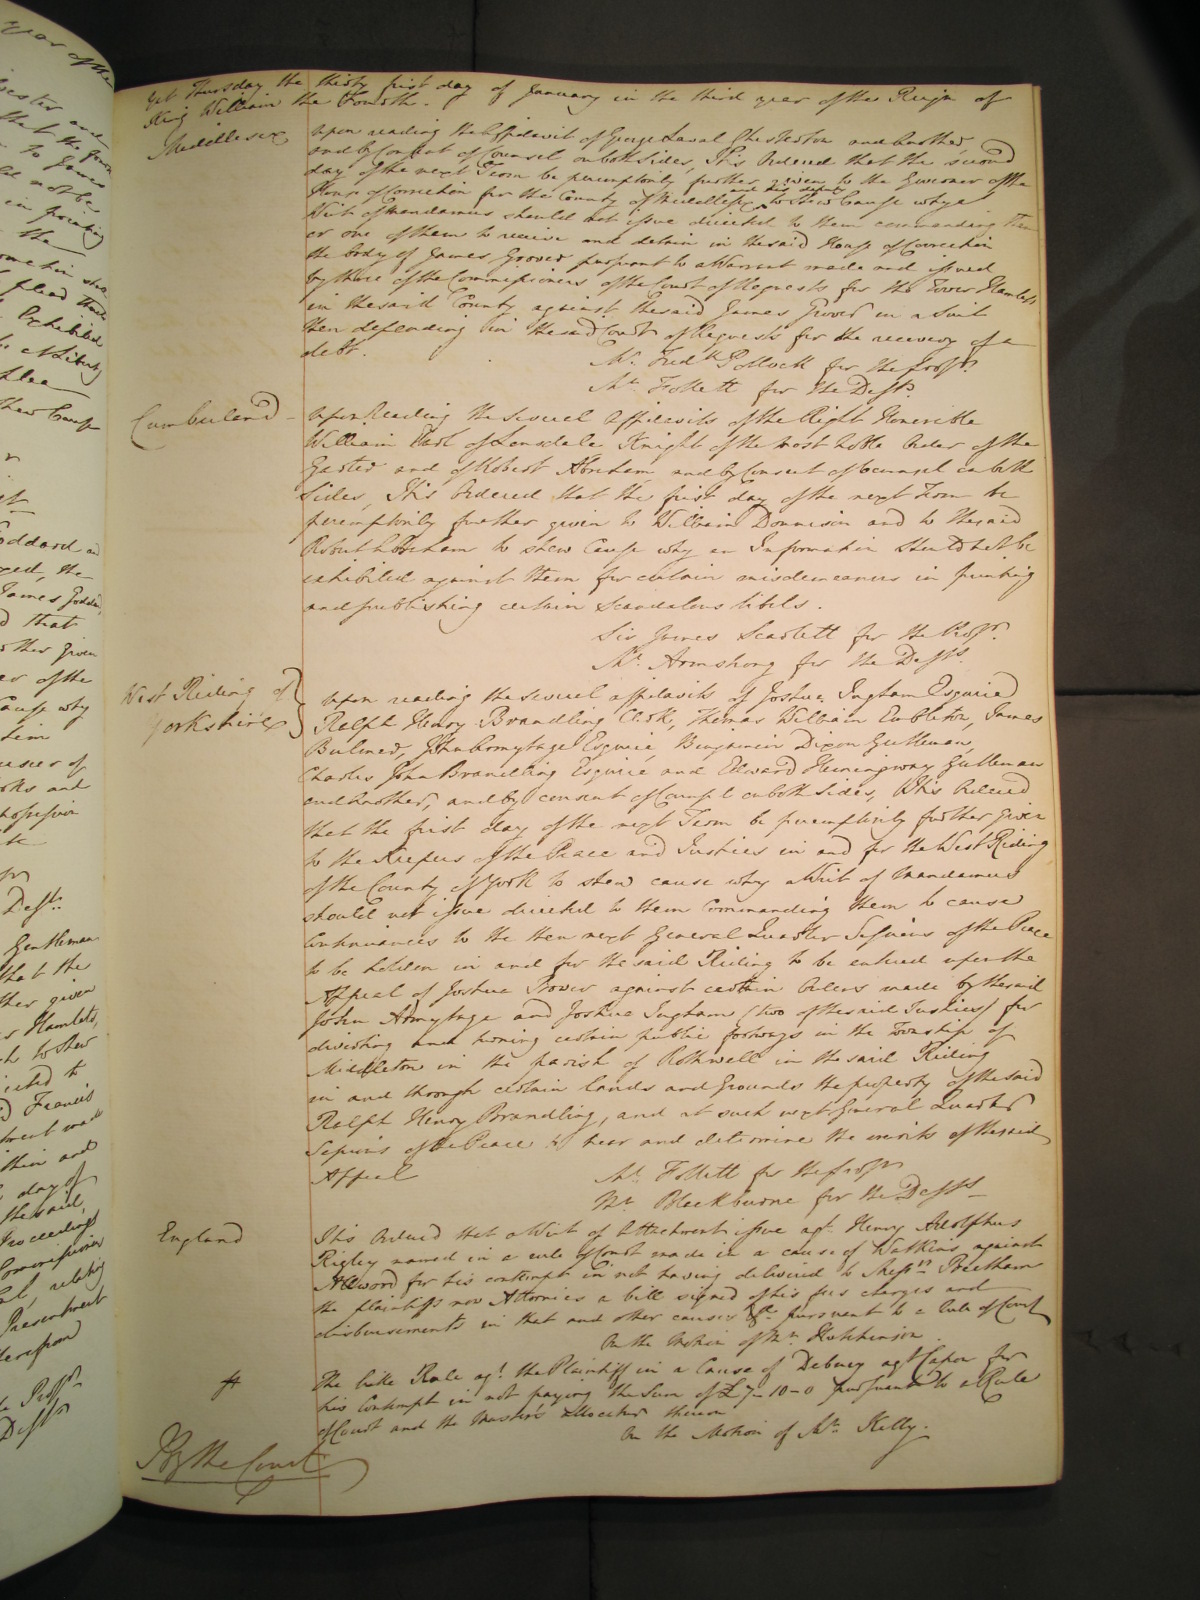 Yet Thursday the thirty first day of January in the third year of the Reign of
King William the Fourth.
Middlesex
Upon reading the Affidavit of George Laval Chesterton and another,
and by Consent of Counsel on both Sides, It is Ordered that the second
day of the next Term be peremptorily further given to the Governor of the
House of Correction for the County of Middlesex and his deputy to shew Cause why a
Writ of Mandamus should not issue directed to them commanding them
or one of them to receive and detain in the said House of Correction
the body of James Grover pursuant to a Warrant made and issued
by three of the Commissioners of the Court of Requests for the Tower Hamlets
in the said County against the said James Grover in a Suit
then depending in the said Court of Requests for the recovery of a
debt.
Mr. Fredk. Pollock for the Prosr.
Mr. Follett for the Defts.
Cumberland
Upon Reading the several Affidavits of the Right Honorable
William Earl of Lonsdale Knight of the most noble Order of the
Garter and of Robert Abraham and by Consent of Counsel on both
Sides, It is Ordered that the first day of the next Term be
peremptorily further given to William Dennison and to the said
Robert Abraham to shew Cause why an Information should not be
exhibited against them for certain misdemeanors in printing
and publishing certain scandalous libels.
Sir James Scarlett for the Prosr.
Mr. Armstrong for the Defts.
West Riding of
Yorkshire
Upon reading the several affidavits of Joshua Ingham Esquire
Ralph Henry Brandling Clerk, Thomas William Embleton, James
Bulmer, John Armytage Esquire, Benjamin Dixon Gentleman,
Charles John Brandling Esquire and Edward Hemingway Gentleman
and another, and by consent of Counsel on both sides, It is Ordered
that the first day of the next Term be peremptorily further given
to the Keepers of the Peace and Justices in and for the West Riding
of the County of York to shew cause why a Writ of Mandamus
should not issue directed to them Commanding them to cause
Continuances to the then next General Quarter Sessions of the Peace
to be holden in and for the said Riding to be entered upon the
Appeal of Joshua Bower against certain Orders made by the said
John Armytage and Joshua Ingham (two of the said Justices) for
diverting and turning certain public footways in the Township of
Middleton in the parish of Rothwell in the said Riding
in and through certain lands and Grounds the property of the said
Ralph Henry Brandling, and at such next General Quarter
Sessions of the Peace to hear and determine the merits of the said
Appeal
Mr. Follett for the Prosr.
Mr. Blackburne for the Defts.
England
It is Ordered that a Writ of Attachment issue agt. Henry Adolphus
Rigley named in a rule of Court made in a cause of Watkins against
Allword for his contempt in not having delivered to Messrs. Preetham
the plaintiffs now Attornies a bill signed of his fees charges and
disbursements in that and other causes &c. pursuant to a Rule of Court
On the Motion of Mr. Hutchinson.
The like Rule agt. the Plaintiff in a Cause of Debney agt. Capon for
his Contempt in not paying the Sum of £7-10-0 pursuant to a Rule
of Court and the Master's allocatur thereon
On the Motion of Mr. Kelly.
By the Court